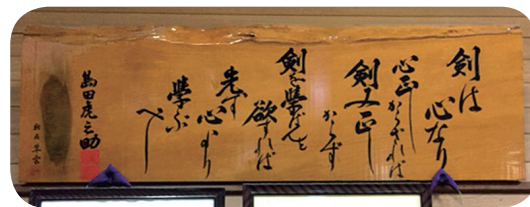 剣は
心なり
心正しからざれば
剣又正し
からず
剣を学ばんと
欲すれば
先ず
心より
学ぶ
べし
島田虎之助